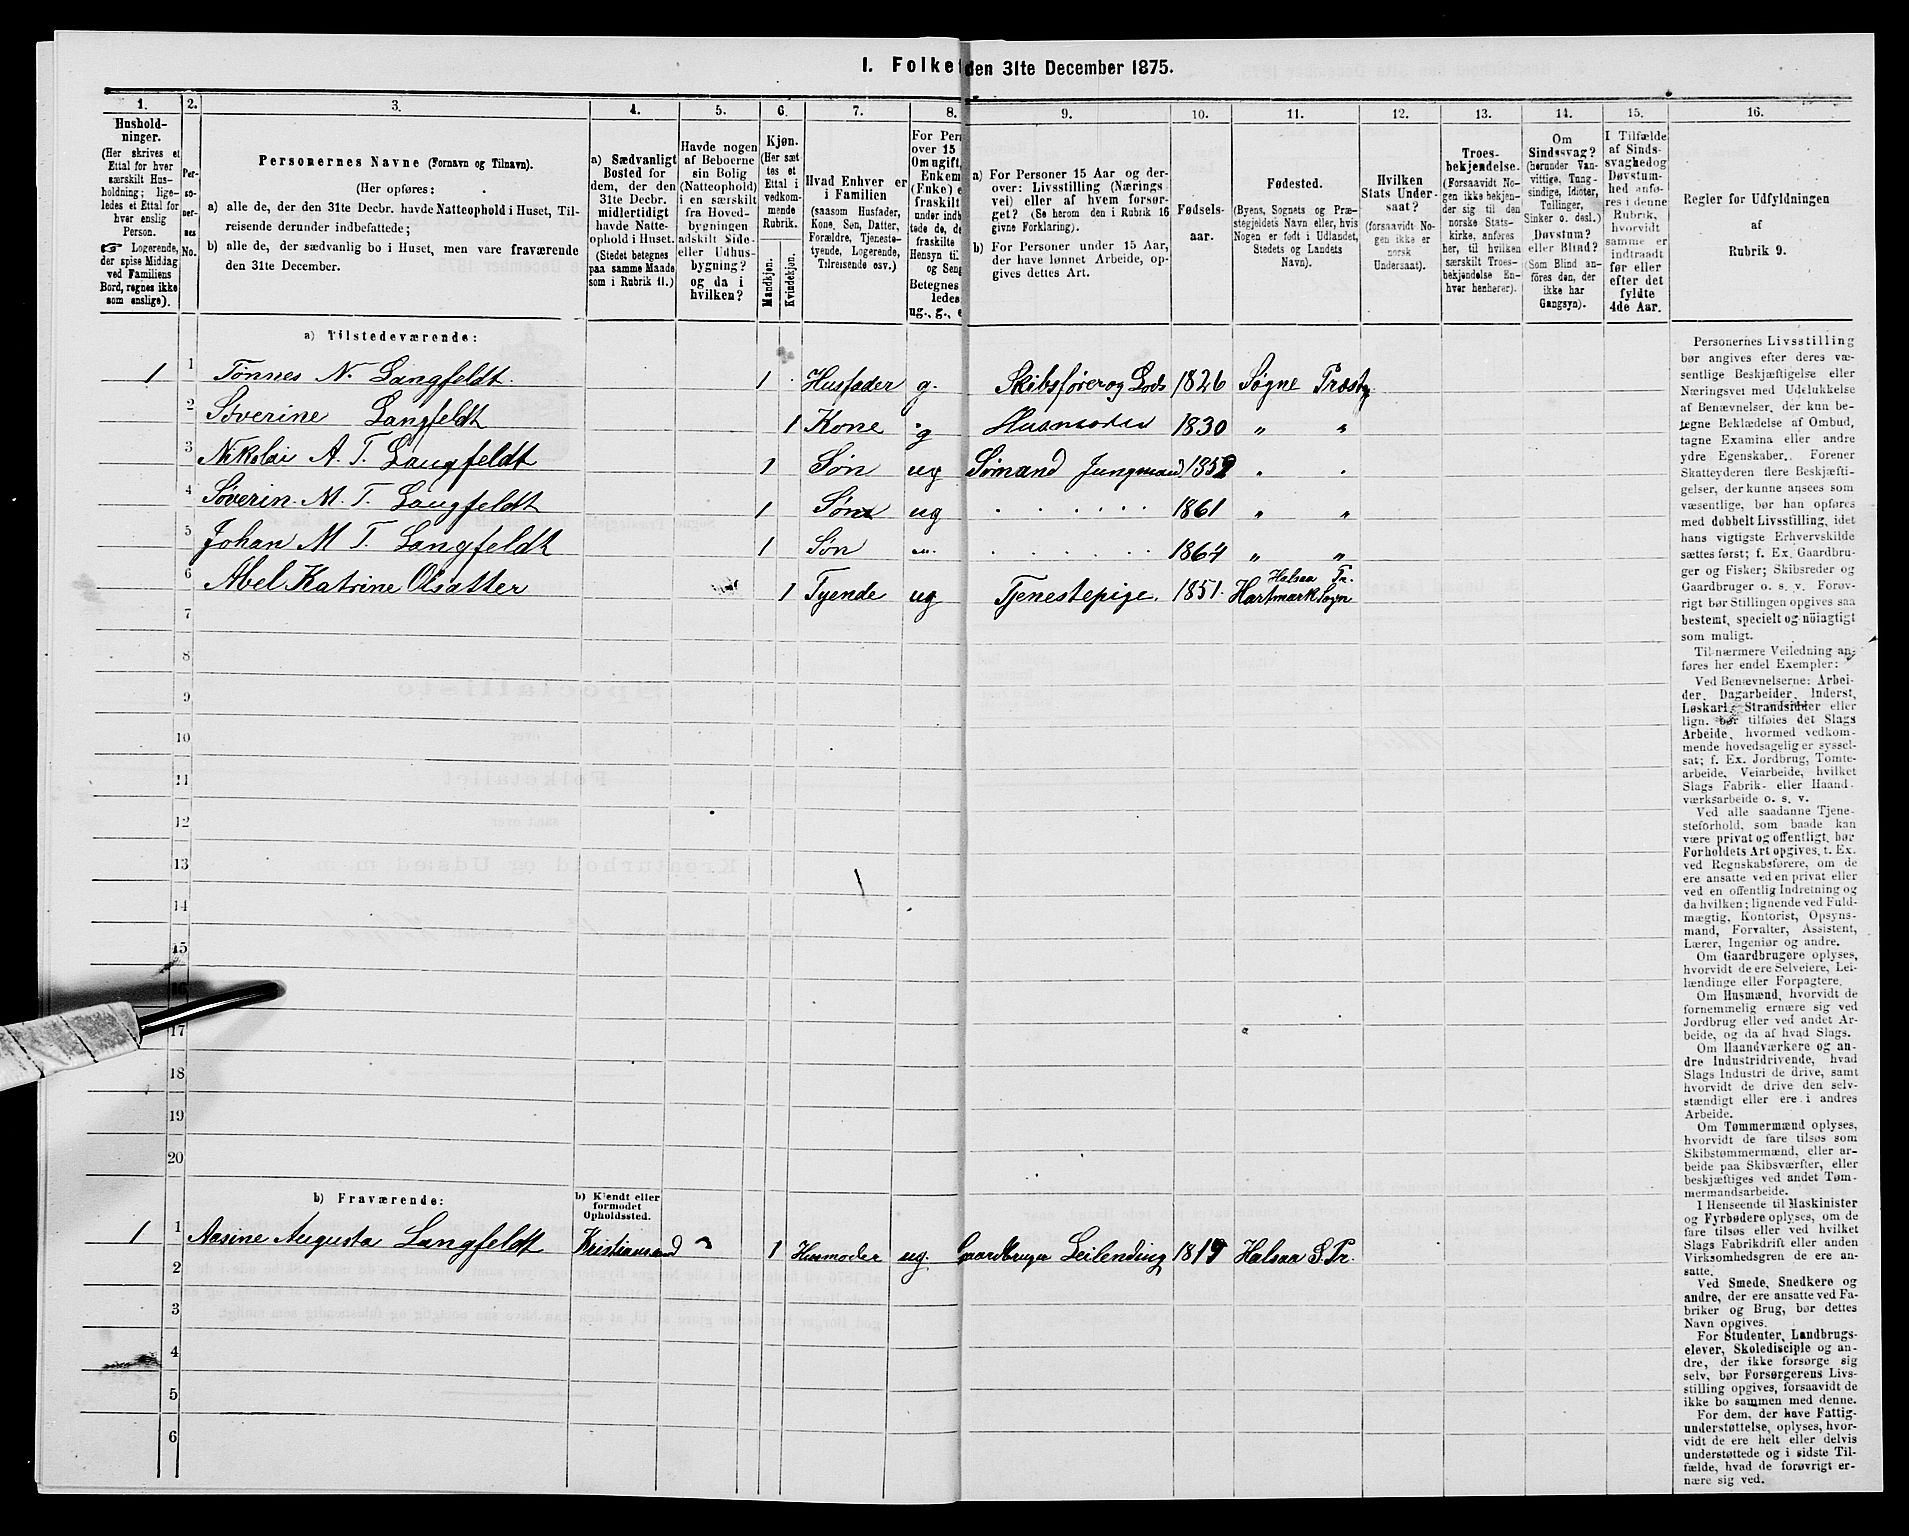 I. Folket den 31te December 1875.
1. 2. 3. 4. 5. 6. 7. 8. 9. 10. 11. 12. 13. 14. 15. 16.
Hushold-
ninger.
(Her skrives et
Ettal for hver
særskilt Hus-
holdning; lige-
ledes et Ettal for
hver enslig
Person.
Logerende,
der spise Middag
ved Familiens
Bord, regnes ikke
som enslige).
Per-
so-
ner-
nes
No.
Personernes Navne (Fornavn og Tilnavn).
(Her opføres:
a) alle de, der den 31te Decbr. havde Natteophold i Huset, Til-
reisende derunder indbefattede;
b) alle de, der sædvanlig bo i Huset, men vare fraværende
den 31te December.
a) Sædvanligt
Bosted for
dem, der den
31te Decbr.
midlertidigt
havde Natte-
ophold i Huset.
(Stedet betegnes
paa samme Maade
som i Rubrik 11.)
Havde nogen
af Beboerne
sin Bolig
(Natteophold)
i en særskilt
fra Hoved-
bygningen
adskilt Side-
eller Udhus-
bygning?
og da i
hvilken?
Kjøn.
(Her sæt
tes et
Ettal i
vedkom-
mende
Rubrik.
Mandkjøn.
Kvindekjøn.
Hvad Enhver er
i Familien
(saasom Husfader,
Kone, Søn, Datter,
Forældre, Tjeneste-
tyende, Logerende,
Tilreisende osv.)
For Per
over 15
Om ugift,
Enkem
(Enke) e
fraskilt
under indb
tede de, de
fraskilte
Hensyn til
og Seng
Betegnes
ledes
ug., g., e
a) For Personer 15 Aar og der-
over: Livsstilling (Nærings
vei) eller af hvem forsør-
get? (Se herom den i Rubrik 16
givne Forklaring).
b) For Personer under 15 Aar,
der have lønnet Arbeide, op-
gives dettes Art.
Fødsels-
aar.
Fødested.
(Byens, Sognets og Præ-
stegjeldets Navn eller, hvis
Nogen er født i Udlandet,
Stedets og Landets
Navn).
Hvilken
Stats Under-
saat?
(forsaavidt No-
gen ikke er
norsk
Undersaat).
Troes-
bekjendelse.
(Forsaavidt No-
gen ikke bekjen-
der sig til den
norske Stats-
kirke, anføres
her, til hvilken
særskilt Troes-
bekjendelse En-
hver henhører).
Om
Sindssvag?
(herunder Van-
vittige, Tung-
sindige, Idioter,
Tullinger,
Sinker o. desl.)
Døvstum?
eller Blind?
(Som Blind an-
føres den, der
ikke har
Gangsyn).
I Tilfælde
af Sinds-
svaghed og
Døvstum-
hed anfø-
res i denne
Rubrik,
hvorvidt
samme er
indtraadt
før eller
efter det
fyldte
4de Aar.
Regler for Udfyldningen
af
Rubrik 9.
a) Tilstedeværende:
1 1 Tønnes N. Langfeldt. 1 Husfader g. Skibsfører og Lods 1826 Søgne Præstg
2 Severine Langfeldt 1 Kone g Husmoder 1830 " "
3 Nikolai A. T. Langfeldt 1 Søn ug Sømand Jungmand " "
4 Søverin M. T. Langfeldt 1 Søn ug 1861 " "
5 Johan M T. Langfeldt 1 Søn 1864 " "
6 Abel Katrine Olsdatter 1 Tyende ug Tjenestepige. 1851. Halsaa Pr.
Hartmark Sogn
7
8
9
10
11
12
13
14
15
16
17
18
19
20
b) Fraværende:
b) Kjendt eller
formodet
Opholdssted.
1 1 Aasine Augusta Langfeldt Kristiansand 1 Husmoder ug. Gaardbruger Leilending Halsaa S. Pr.
2
3
4
5
6
Personernes Livsstilling
bør angives efter deres væ-
sentlige Beskjæftigelse eller
Næringsvei med Udelukkelse
af Benævnelser, der kun be-
tegne Beklædelse af Ombud,
tagne Examina eller andre
ydre Egenskaber. Forener
Skatteyderen flere Beskjæfti-
gelser, der kunne ansees som
væsentlige, bør han opføres
med dobbelt Livsstilling, idet
hans vigtigste Erhvervskilde
sættes først; f. Ex. Gaardbru-
ger og Fisker; Skibsreder og
Gaardbruger o. s. v. Forøv-
rigt bør Stillingen opgives saa
bestemt, specielt og nöiagtigt
som muligt.
Til nærmere Veiledning an-
føres her endel Exempler:
Ved Benævnelserne: Arbei-
der, Dagarbeider, Inderst,
Løskarl, Strandsidder eller
lign. bør tilføies det Slags
Arbeide, hvormed vedkom-
mende hovedsagelig er syssel-
sat; f. Ex. Jordbrug, Tomte-
arbeide, Veiarbeide, hvilket
Slags Fabrik- eller Haand-
værksarbeide o. s. v.
Ved alle saadanne Tjene-
steforhold, som baade kan
være privat og offentligt, bør
Forholdets Art opgives, t. Ex.
ved Regnskabsførere, om de
ere ansatte ved en privat eller
ved en offentlig Indretning og
da hvilken; lignende ved Fuld-
mægtig, Kontorist, Opsyns-
mand, Forvalter, Assistent,
Lærer, Ingeniør og andre.
Om Gaardbrugere oplyses,
hvorvidt de ere Selveiere, Lei-
lændinge eller Forpagtere.
Om Husmænd, hvorvidt de
fornemmelig ernære sig ved
Jordbrug eller ved andet Ar-
beide, og da af hvad Slags.
Om Haandværkere og an-
dre Industridrivende, hvad
Slags Industri de drive, samt
hvorvidt de drive den selv-
stændigt eller ere i andres
Arbeide.
Om Tømmermænd oplyses,
hvorvidt de fare tilsøs som
Skibstømmermænd, eller ar-
beide paa Skibsværfter, eller
beskjæftiges ved andet Tøm-
mermandsarbeide.
I Henseende til Maskinister
og Fyrbødere oplyses, om de
fare tilsøs eller ved hvilket
Slags Fabrikdrift eller anden
Virksomhedsgren de ere an-
satte.
Ved Smede, Snedkere og
andre, der ere ansatte ved Fa-
briker og Brug, bør dettes
Navn opgives.
For Studenter, Landbrugs-
elever, Skoledisciple og an-
dre, der ikke forsørge sig
selv, bør Forsørgerens Livs-
stilling opgives, forsaavidt de
ikke bo sammen med denne.
For dem, der have Fattig-
understøttelse, oplyses, hvor-
vidt de ere helt eller delvis
understøttede og i sidste Til-
fælde, hvad de forøvrigt er-
nære sig ved.